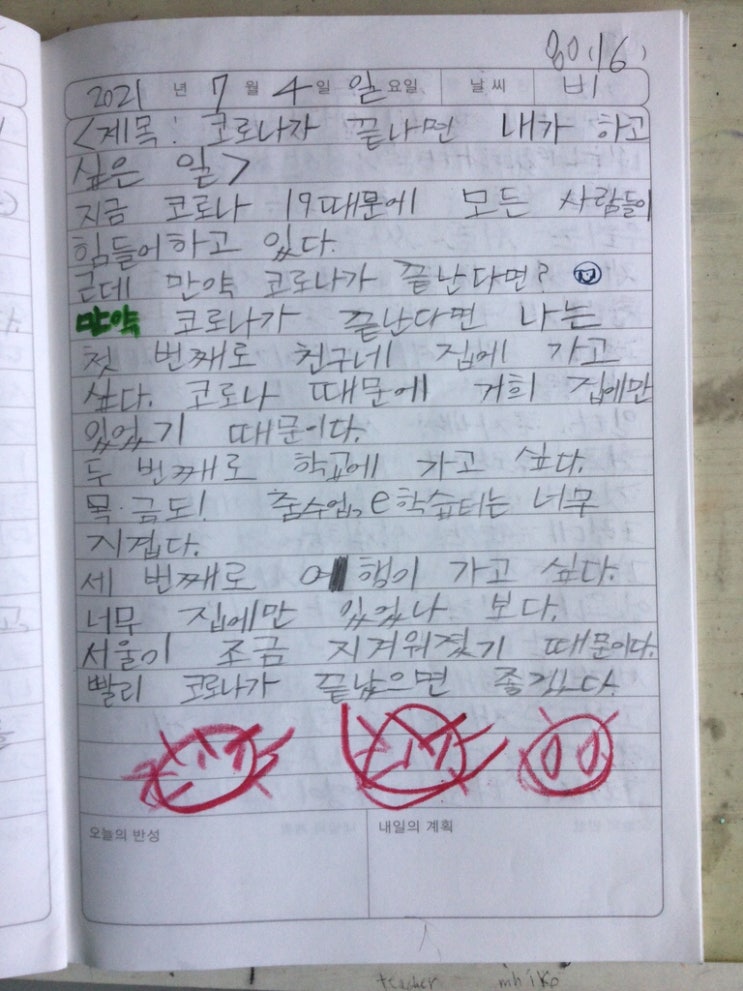 80(16)
2021 년 7 월 4 일 일 요일 날 씨 비
<제목: 코로나가 끝나면 내가 하고
싶은 일>
지금 코로나 19때문에 모든 사람들이
힘들어하고 있다.
근데 만약 코로나가 끝난다면?
만약 코로나가 끝난다면 나는
첫 번째로 친구네 집에 가고
싶다. 코로나 때문에 거희 집에만
있었기 때문이다.
두 번째로 학교에 가고 싶다.
목·금도! 줌수업, e학습터는 너무
지겹다.
세 번째로 여행이 가고 싶다.
너무 집에만 있었나 보다.
서울이 조금 지겨워졌기 때문이다.
빨리 코로나가 끝났으면 좋겠다
오늘의 반성 내일의 계획
teacher